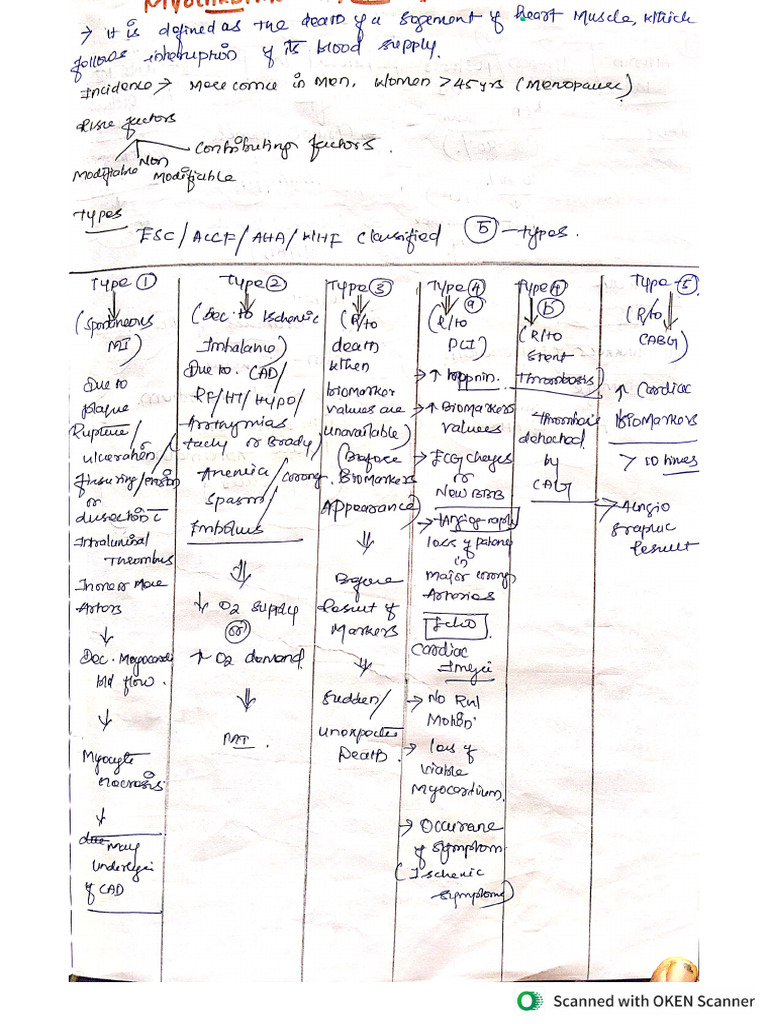 → It is defined as the death of a sogement of heart Muscle, which
follows interruption of its blood supply.
Incidence → More comce in Men, Women >45 yrs (Menopause)
Risk factors
Contributing factors.
Modifiable Non Modifiable
Types
ESC/ACCF/AHA/WHF Classified 5 - types.
Type 1
(Spontaneous
MI)
Due to
plaque
Rupture/
ulceration/
fissuring/erosion
or
dissection c̄
Intraluminal
Thrombus
In one or More
Arters
↓
Dec. Myocardi
bld flow.
↓
Myocyte
necrosis
↓
May
Underlyi
of CAD
Type 2
(Sec. to Ischemic
Imbalance)
Due to. CAD/
RF/HT/HYPO/
Arrhymias
(tachy or Brady)
Anemia/corony
spasm/
Embolus
⇓
↓ O2 supply
or
↑ O2 demand
⇓
MI.
Type 3
(R/to
death
when
biomarker
values are
unavailable)
(Before
Biomarkers
Appearance)
⇓
Before
Result of
Markers
⇓
Sudden/
unexpected
Death.
Type 4
a
(R/to
PCI)
→ ↑ troponin.
→ ↑ BioMarkers
values
→ ECG chayes
or
New BBB
→ Angiography
loss of patency
in
major corony
Arteries
Echo
Cardiac
Imagi
→ No Rwl
Motion.
→ loss of
viable
Myocardium.
→ Ocurrane
of symptom
(Ischemic
symptoms)
Type 4
b
(R/to
Stent
Thrombosis)
thrombosis
detected
by
CAG
Type - 5
(R/to
CABG)
↑ Cardiac
BioMarkers
> 10 times
→ Angio
graphic
Result
Scanned with OKEN Scanner